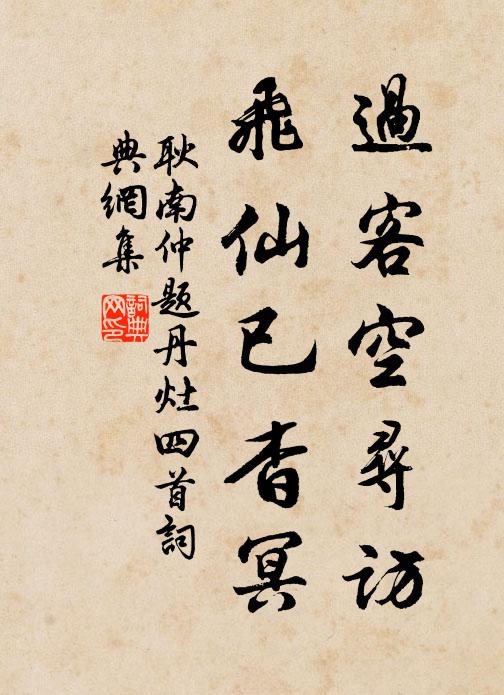 過客空尋訪
飛仙已杳冥
耿南仲題丹灶四首詞
典網集
詞典網印